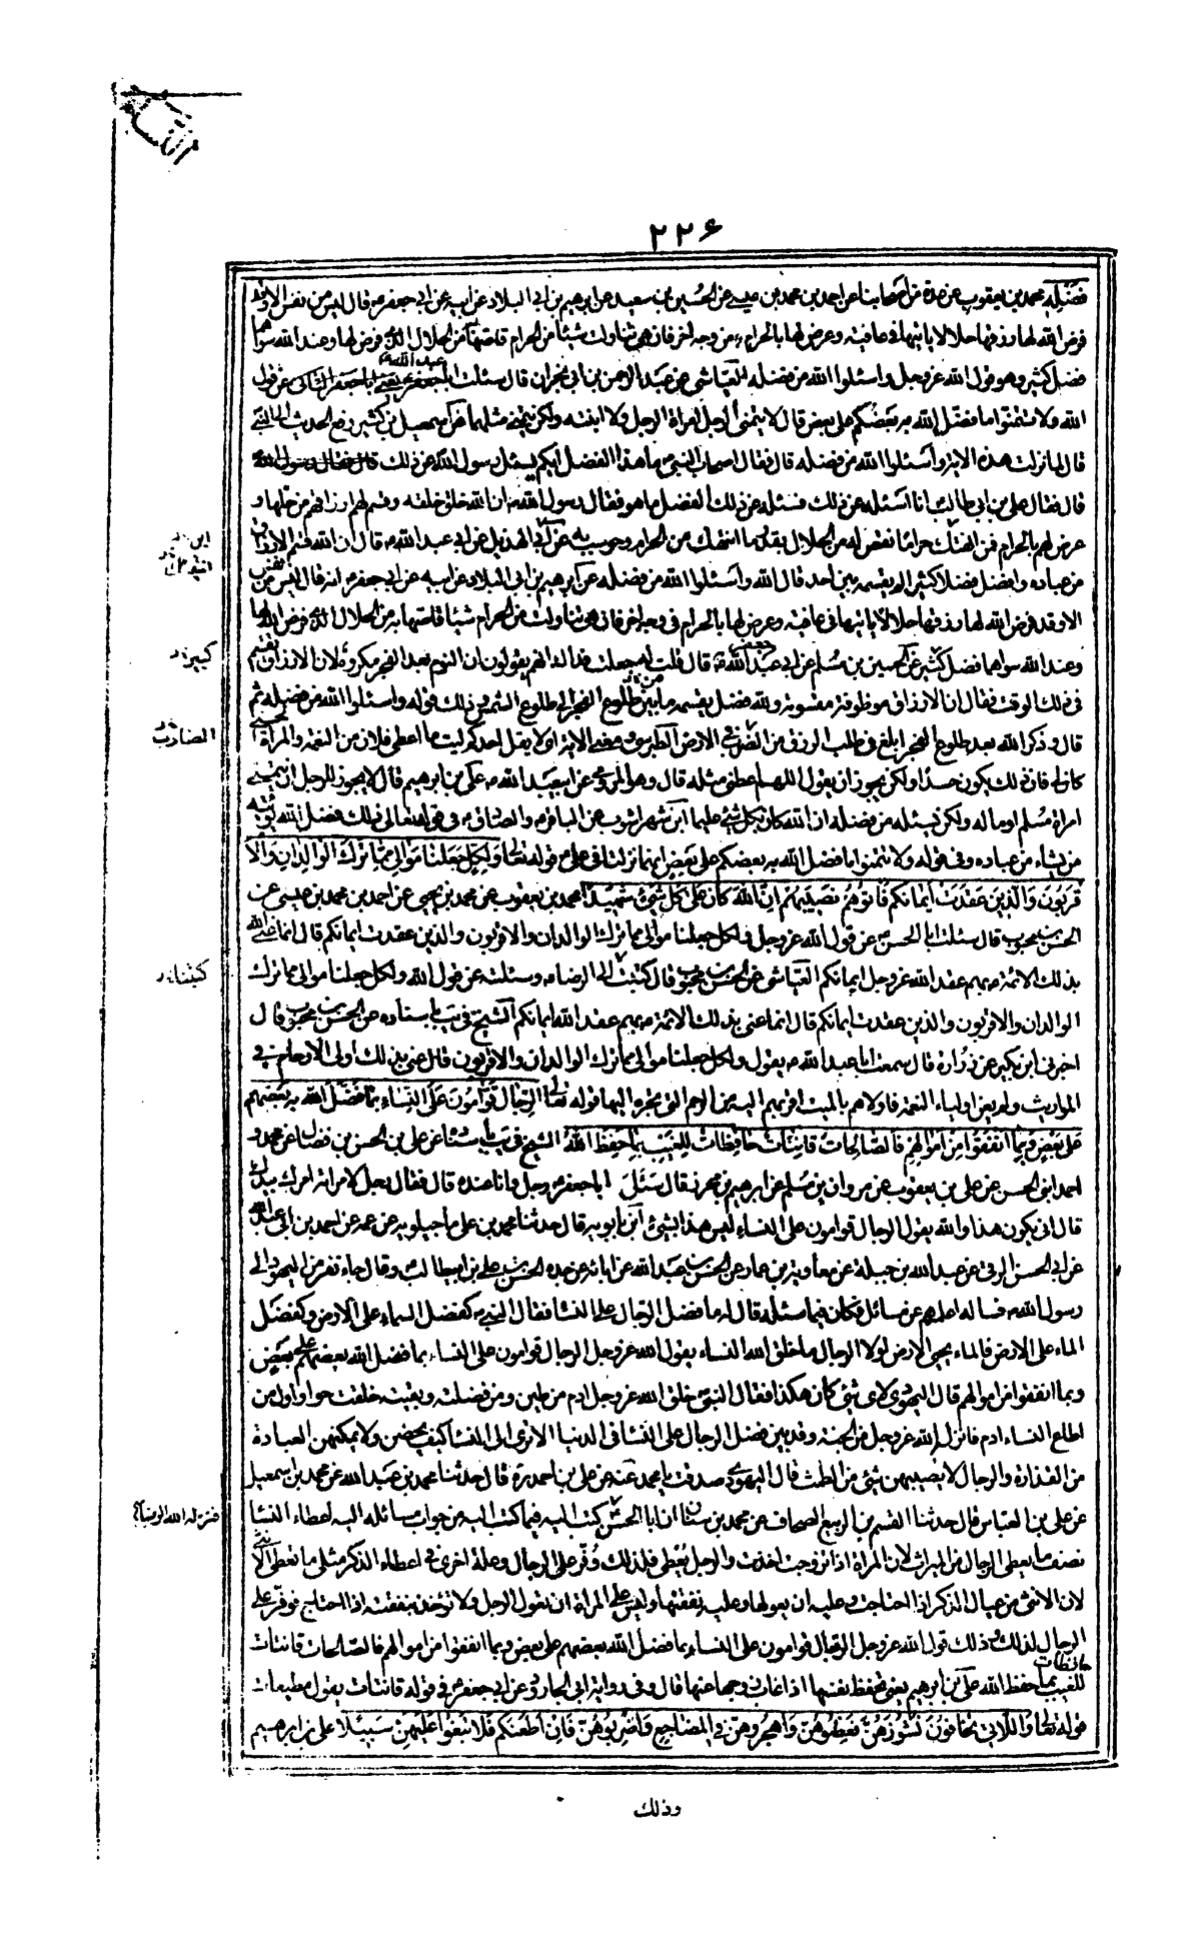 النساء
٢٢۶
فضله محمد بن يعقوب عن عدة من اصحابنا عن احمد بن محمد بن عيسى عن الحسين بن سعيد عن ابرهيم بن ابى البلاد عن ابيه عن ابى جعفر ع قال ليس من نفس الا وقد
فرض الله لها رزقها حلالا ياتيها فى عافية وعرض لها بالحرام من وجه اخر فان هى تناولت شيئا من الحرام قاصها من الحلال الذى فرض لها وعند الله سواهما
فضل كثير وهو قول الله عز وجل واسئلوا الله من فضله العياشى عن عبد الرحمن بن ابى نجران قال سئلت ابا جعفر الثانى عن قول
الله ولا تتمنوا ما فضل الله به بعضكم على بعض قال لا يتمنى الرجل امراة الرجل ولا ابنته ولكن يتمنى مثلها عن اسمعيل بن كثير رفع الحديث الى النبى
قال لما نزلت هذه الاية واسئلوا الله من فضله قال فقال اصحاب النبى ما هذا الفضل ايكم يسئل رسول الله عن ذلك
قال فقال على بن ابى طالب انا اسئله عن ذلك فسئله عن ذلك الفضل ما هو فقال رسول الله ان الله خلق خلقه وقسم لهم ارزاقهم من حلها و
عرض لهم بالحرام فمن انتهك حراما نقص له من الحلال بقدر ما انتهك من الحرام وحوسب به عن ابى الهذيل عن ابى عبد الله ع قال ان الله قسم الارزاق
بين عباده وافضل فضلا كثيرا لم يقسمه بين احد قال الله واسئلوا الله من فضله عن ابرهيم بن ابى البلاد عن ابيه عن ابى جعفر ع انه قال ليس من نفس
الا وقد فرض الله لها رزقها حلالا ياتيها فى عافية وعرض لها بالحرام فى وجه اخر فان هى تناولت من الحرام شيئا قاصها به من الحلال الذى فرض الله لها
وعند الله سواهما فضل كثير عن الحسين بن مسلم عن ابى جعفر ع قال قلت له جعلت فداك انهم يقولون ان النوم بعد الفجر مكروه لان الارزاق تقسم
فى ذلك الوقت فقال ان الارزاق موظوفة مقسومة ولله فضل يقسمه ما بين طلوع الفجر الى طلوع الشمس وذلك قوله واسئلوا الله من فضله ثم
قال وذكر الله بعد طلوع الفجر ابلغ فى طلب الرزق من الضرب فى الارض الطبرسى فى معنى الاية اى لا يقل احدكم ليت ما اعطى فلان من النعمة والمراة الحسنى
كان لى فان ذلك يكون حسدا ولكن يجوز ان يقول اللهم اعطنى مثله قال وهو المروى عن ابى عبد الله ع على بن ابرهيم قال لا يجوز للرجل ان يتمنى
امراة مسلم او ماله ولكن يسئله من فضله ان الله كان بكل شئ عليما ابن شهراشوب عن الباقر ع والصادق ع فى قوله تعالى ذلك فضل الله يؤتيه
من يشاء من عباده وفى قوله ولا تتمنوا ما فضل الله به بعضكم على بعض انهما نزلتا فى على ع قوله تعالى ولكل جعلنا موالى مما ترك الوالدان والا
قربون والذين عقدت ايمانكم فاتوهم نصيبهم ان الله كان على كل شئ شهيدا محمد بن يعقوب عن محمد بن يحيى عن احمد بن محمد بن عيسى عن
الحسن بن محبوب قال سئلت ابا الحسن ع عن قول الله عز وجل ولكل جعلنا موالى مما ترك الوالدان والاقربون والذين عقدت ايمانكم قال انما عنى
بذلك الائمة ع بهم عقد الله عز وجل ايمانكم العياشى عن الحسن بن محبوب قال كتبت الى الرضا ع وسئلته عن قول الله ولكل جعلنا موالى مما ترك
الوالدان والاقربون والذين عقدت ايمانكم قال انما عنى بذلك الائمة ع بهم عقد الله ايمانكم الشيخ فى يب باسناده عن الحسن بن محبوب قال
اخبرنى ابن بكير عن زرارة قال سمعت ابا عبد الله ع يقول ولكل جعلنا موالى مما ترك الوالدان والاقربون قال عنى بذلك اولى الارحام فى
المواريث ولم يعن اولياء النعمة فاولاهم بالميت اقربهم اليه من الرحم التى تجره اليها قوله تعالى الرجال قوامون على النساء بما فضل الله بعضهم
على بعض وبما انفقوا من اموالهم فالصالحات قانتات حافظات للغيب بما حفظ الله الشيخ فى يب باسناده عن على بن الحسن بن فضال عن محمد و
احمد ابنى الحسن عن على بن يعقوب عن مروان بن مسلم عن ابرهيم بن محرز قال سئل ابا جعفر ع رجل وانا عنده قال فقال رجل لامراته امرك بيدك
قال انى يكون هذا والله يقول الرجال قوامون على النساء ليس هذا بشئ ابن بابويه قال حدثنا محمد بن على ماجيلويه عن عمه عن احمد بن ابى عبد الله
عن ابى الحسن البرقى عن عبد الله بن جبلة عن معاوية بن عمار عن الحسن بن عبد الله عن ابائه عن جده الحسن بن على بن ابيطالب ع قال جاء نفر من اليهود الى
رسول الله ص فساله اعلمهم عن مسائل فكان فيما سئله قال له ما فضل الرجال على النسا فقال النبى ص كفضل السماء على الارض وكفضل
الماء على الارض فالماء يحيى الارض لولا الرجال ما خلق الله النساء يقول الله عز وجل الرجال قوامون على النساء بما فضل الله بعضهم على بعض
وبما انفقوا من اموالهم قال اليهودى لاى شئ كان هكذا فقال النبى ص خلق الله عز وجل ادم من طين ومن فضلته وبقيته خلقت حوا واول من
اطاع النساء ادم فانزله الله عز وجل من الجنة وقد بين فضل الرجال على النسا فى الدنيا الا ترى الى النسا كيف يحضن ولا يمكنهن العبادة
من القذارة والرجال لا يصيبهم شئ من الطمث قال اليهودى صدقت يا محمد عنه عن على بن احمد ره قال حدثنا محمد بن عبد الله عن محمد بن اسمعيل
عن على بن العباس قال حدثنا القسم بن الربيع الصحاف عن محمد بن سنان ان ابا الحسن كتب اليه فيما كتب اليه من جواب مسائله اليه اعطاء النسا
نصف ما يعطى الرجال من الميراث لان المراة اذا تزوجت اخذت والرجل يعطى فلذلك وفر على الرجال وعلة اخرى فى اعطاء الذكر مثلى ما تعطى الانثى
لان الانثى من عيال الذكر اذا احتاجت وعليه ان يعولها وعليه نفقتها وليس على المراة ان تعول الرجل ولا تؤخذ بنفقته اذا احتاج فوفر على
الرجال لذلك وذلك قول الله عز وجل الرجال قوامون على النساء بما فضل الله بعضهم على بعض وبما انفقوا من اموالهم فالصالحات قانتات
حافظات
للغيب بما حفظ الله على بن ابرهيم يعنى تحفظ نفسها اذا غاب زوجها عنها قال وفى رواية ابى الجارود عن ابى جعفر ع فى قوله قانتات يقول مطيعات
قوله تعالى واللاتى تخافون نشوزهن فعظوهن واهجروهن فى المضاجع واضربوهن فان اطعنكم فلا تبغوا عليهن سبيلا على بن ابرهيم
وذلك